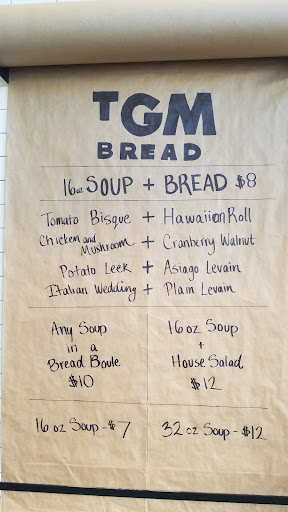 TGM
BREAD
16oz SOUP + BREAD $8
Tomato Bisque + Hawaiion Roll
Chicken and Mushroom + Cranberry Walnut
Potato Leek + Asiago Levain
Italian Wedding + Plain Levain
Any Soup
in a
Bread Boule
$10
16 oz Soup
+
House Salad
$12
16 oz Soup - $7
32 oz Soup - $12